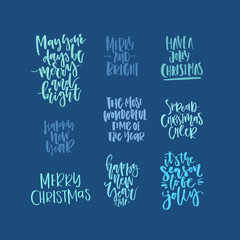 May your
days be
merry
and
bright
MERRY
AND
BRIGHT
HAVE A
JOLLY
CHRISTMAS
happy
new
year
THE MOST
WONDERFUL
TIME OF
THE YEAR
SPREAD
CHRISTMAS
CHEER
MERRY
CHRISTMAS
happy
new
year
it's the
SEASON
to be
jolly